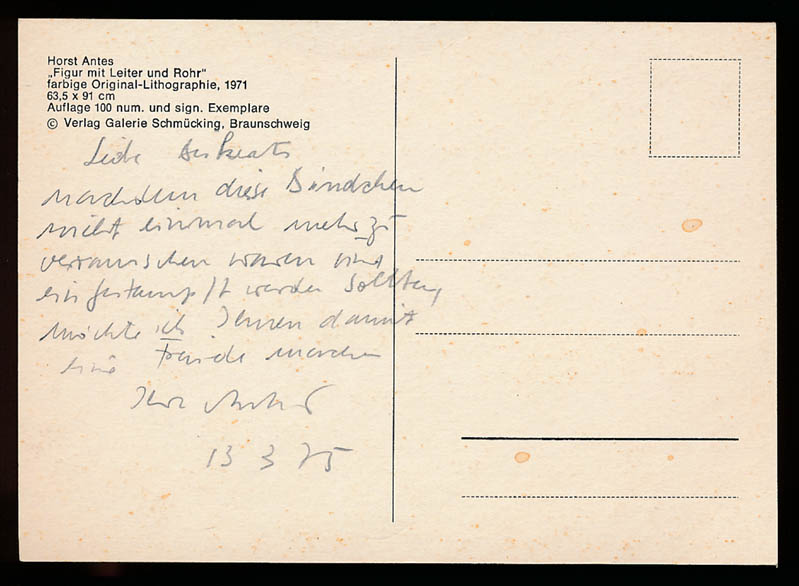 Horst Antes
„Figur mit Leiter und Rohr“
farbige Original-Lithographie, 1971
63,5 x 91 cm
Auflage 100 num. und sign. Exemplare
© Verlag Galerie Schmücking, Braunschweig
nachdem diese Bändchen
nicht einmal mehr zu
verramschen waren und
eingestampft werden sollten,
möchte ich Ihnen damit
eine Freude machen
Ihr
13 3 75